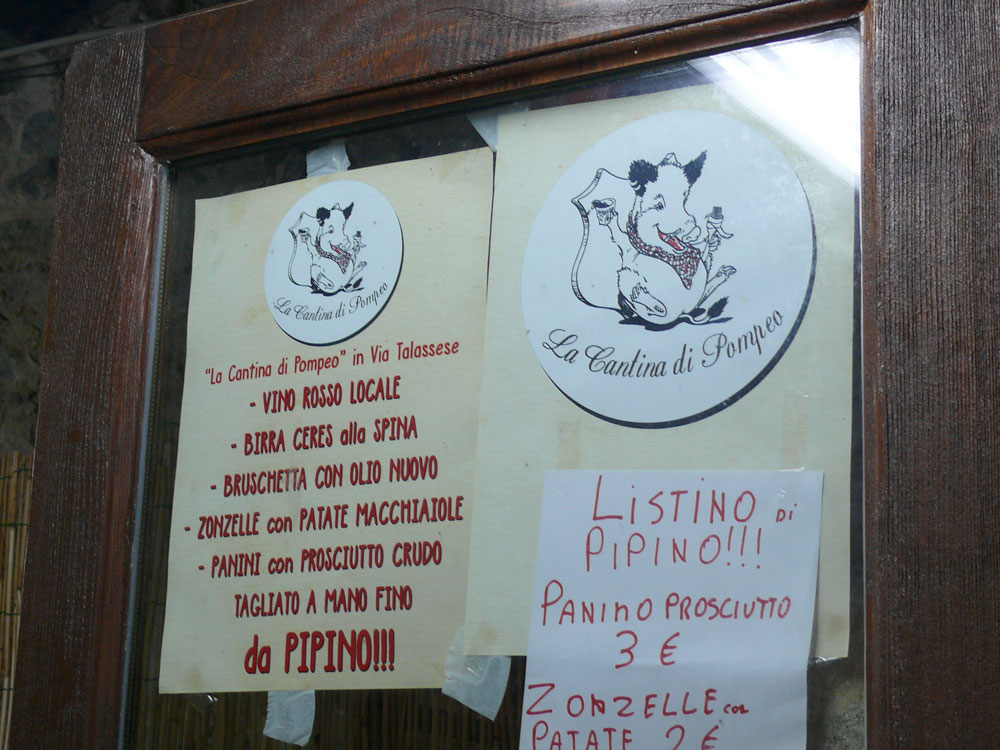 La Cantina di Pompeo
"La Cantina di Pompeo" in Via Talassese
- VINO ROSSO LOCALE
- BIRRA CERES alla SPINA
- BRUSCHETTA CON OLIO NUOVO
- ZONZELLE con PATATE MACCHIAIOLE
- PANINI con PROSCIUTTO CRUDO
TAGLIATO A MANO FINO
da PIPINO!!!
La Cantina di Pompeo
LISTINO Di
PIPINO!!!
PANINO PROSCIUTTO
3 €
ZONZELLE con
PATATE 2 €